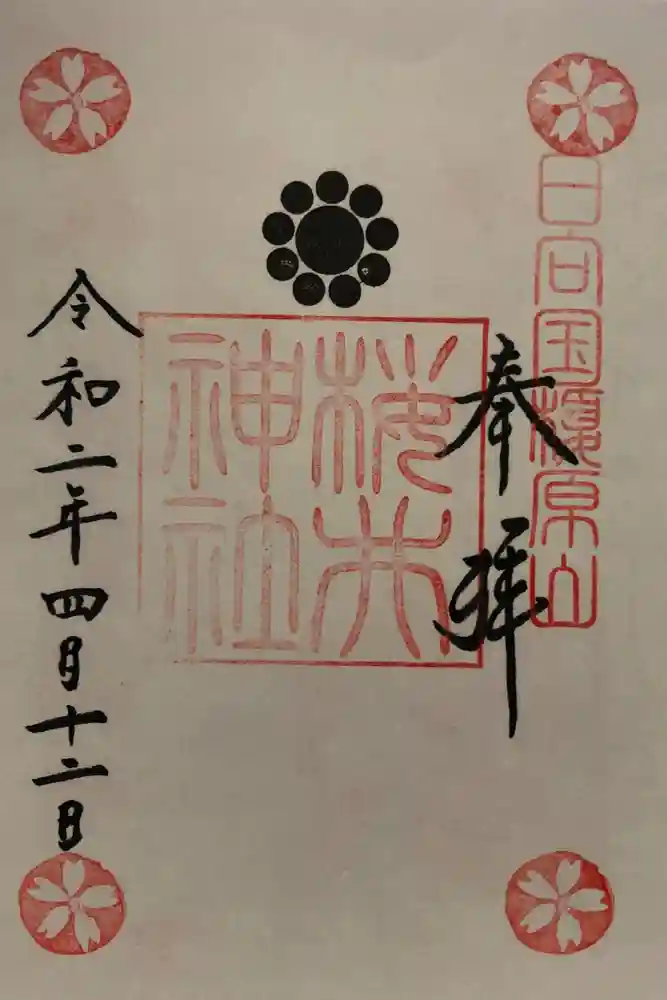 日向国 原山
奉拝
桜井
神社
令和二年四月十二日